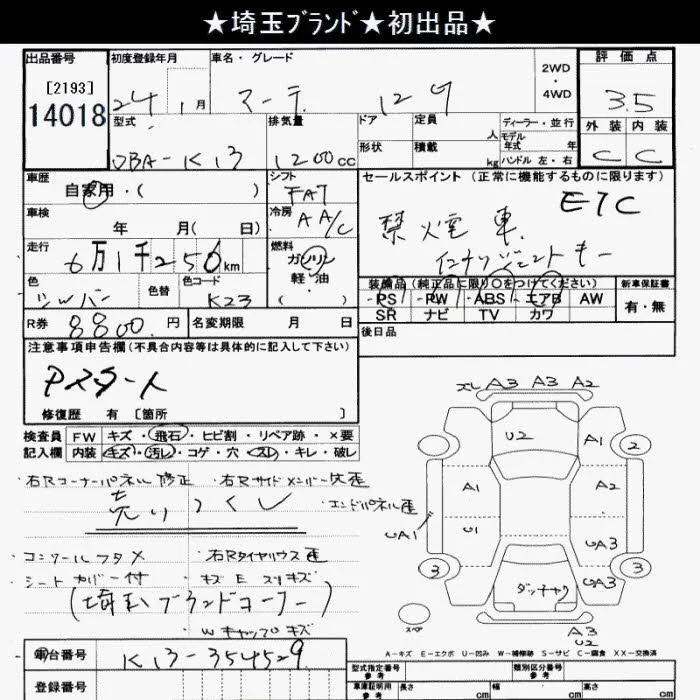 ★埼玉ﾌﾞﾗﾝﾄﾞ★初出品★
出品番号 初度登録年月 車名・グレード 2WD・4WD 評価点
[2193]
14018
24年 1月 マーチ 12 3.5
型式 排気量 ドア 定員 人 ディーラー・並行 外装 内装
形状 積載 kg モデル年式 年
ハンドル 左・右
DBA-K13 1200cc C C
車歴 自家用・( ) シフト FAT セールスポイント(正常に機能するものに限ります)
ETC
車検 年 月( 日) 冷房 AA/C 禁煙車
走行 6万1千250km 燃料 ガソリン 軽・油 ( ) インテリジェントキー
色 シルバー 色替 色コード K23
装備品(純正品に限り○をつけてください) 新車保証書
PS PW ABS エアB AW 有・無
SR ナビ TV カワ
R券 8800円 名変期限 月 日 後日品
注意事項申告欄(不具合内容等は具体的に記入して下さい)
Pスタート
修復歴 有 [箇所 ]
検査員 FW キズ・飛石・ヒビ割・リペア跡・×要
記入欄 内装 キズ・汚レ・コゲ・穴・スレ・キレ・破レ
・右Rコーナーパネル修正 ・右Rサイドメンバー穴歪
売りつくし ・エンドパネル歪
・コンソールフタ× ・右Rタイヤハウス歪
・シートカバー付 ・キズ E スリキズ
(埼玉ブランドコーナー)
・Wキャップキズ
A3 A3 A2
U2 A1 2
A1 A2
UA1 U1 UA3
3 UA3 3
ダッチャク
スペア
A3
U2
A-キズ E-エクボ U-凹み W-補修跡 S-サビ C-腐食 XX-交換済
車台番号 K13-354529
登録番号
型式指定番号 参考 類別区分番号 参考
車庫証明用 参考 長さ cm 幅 cm 高さ cm